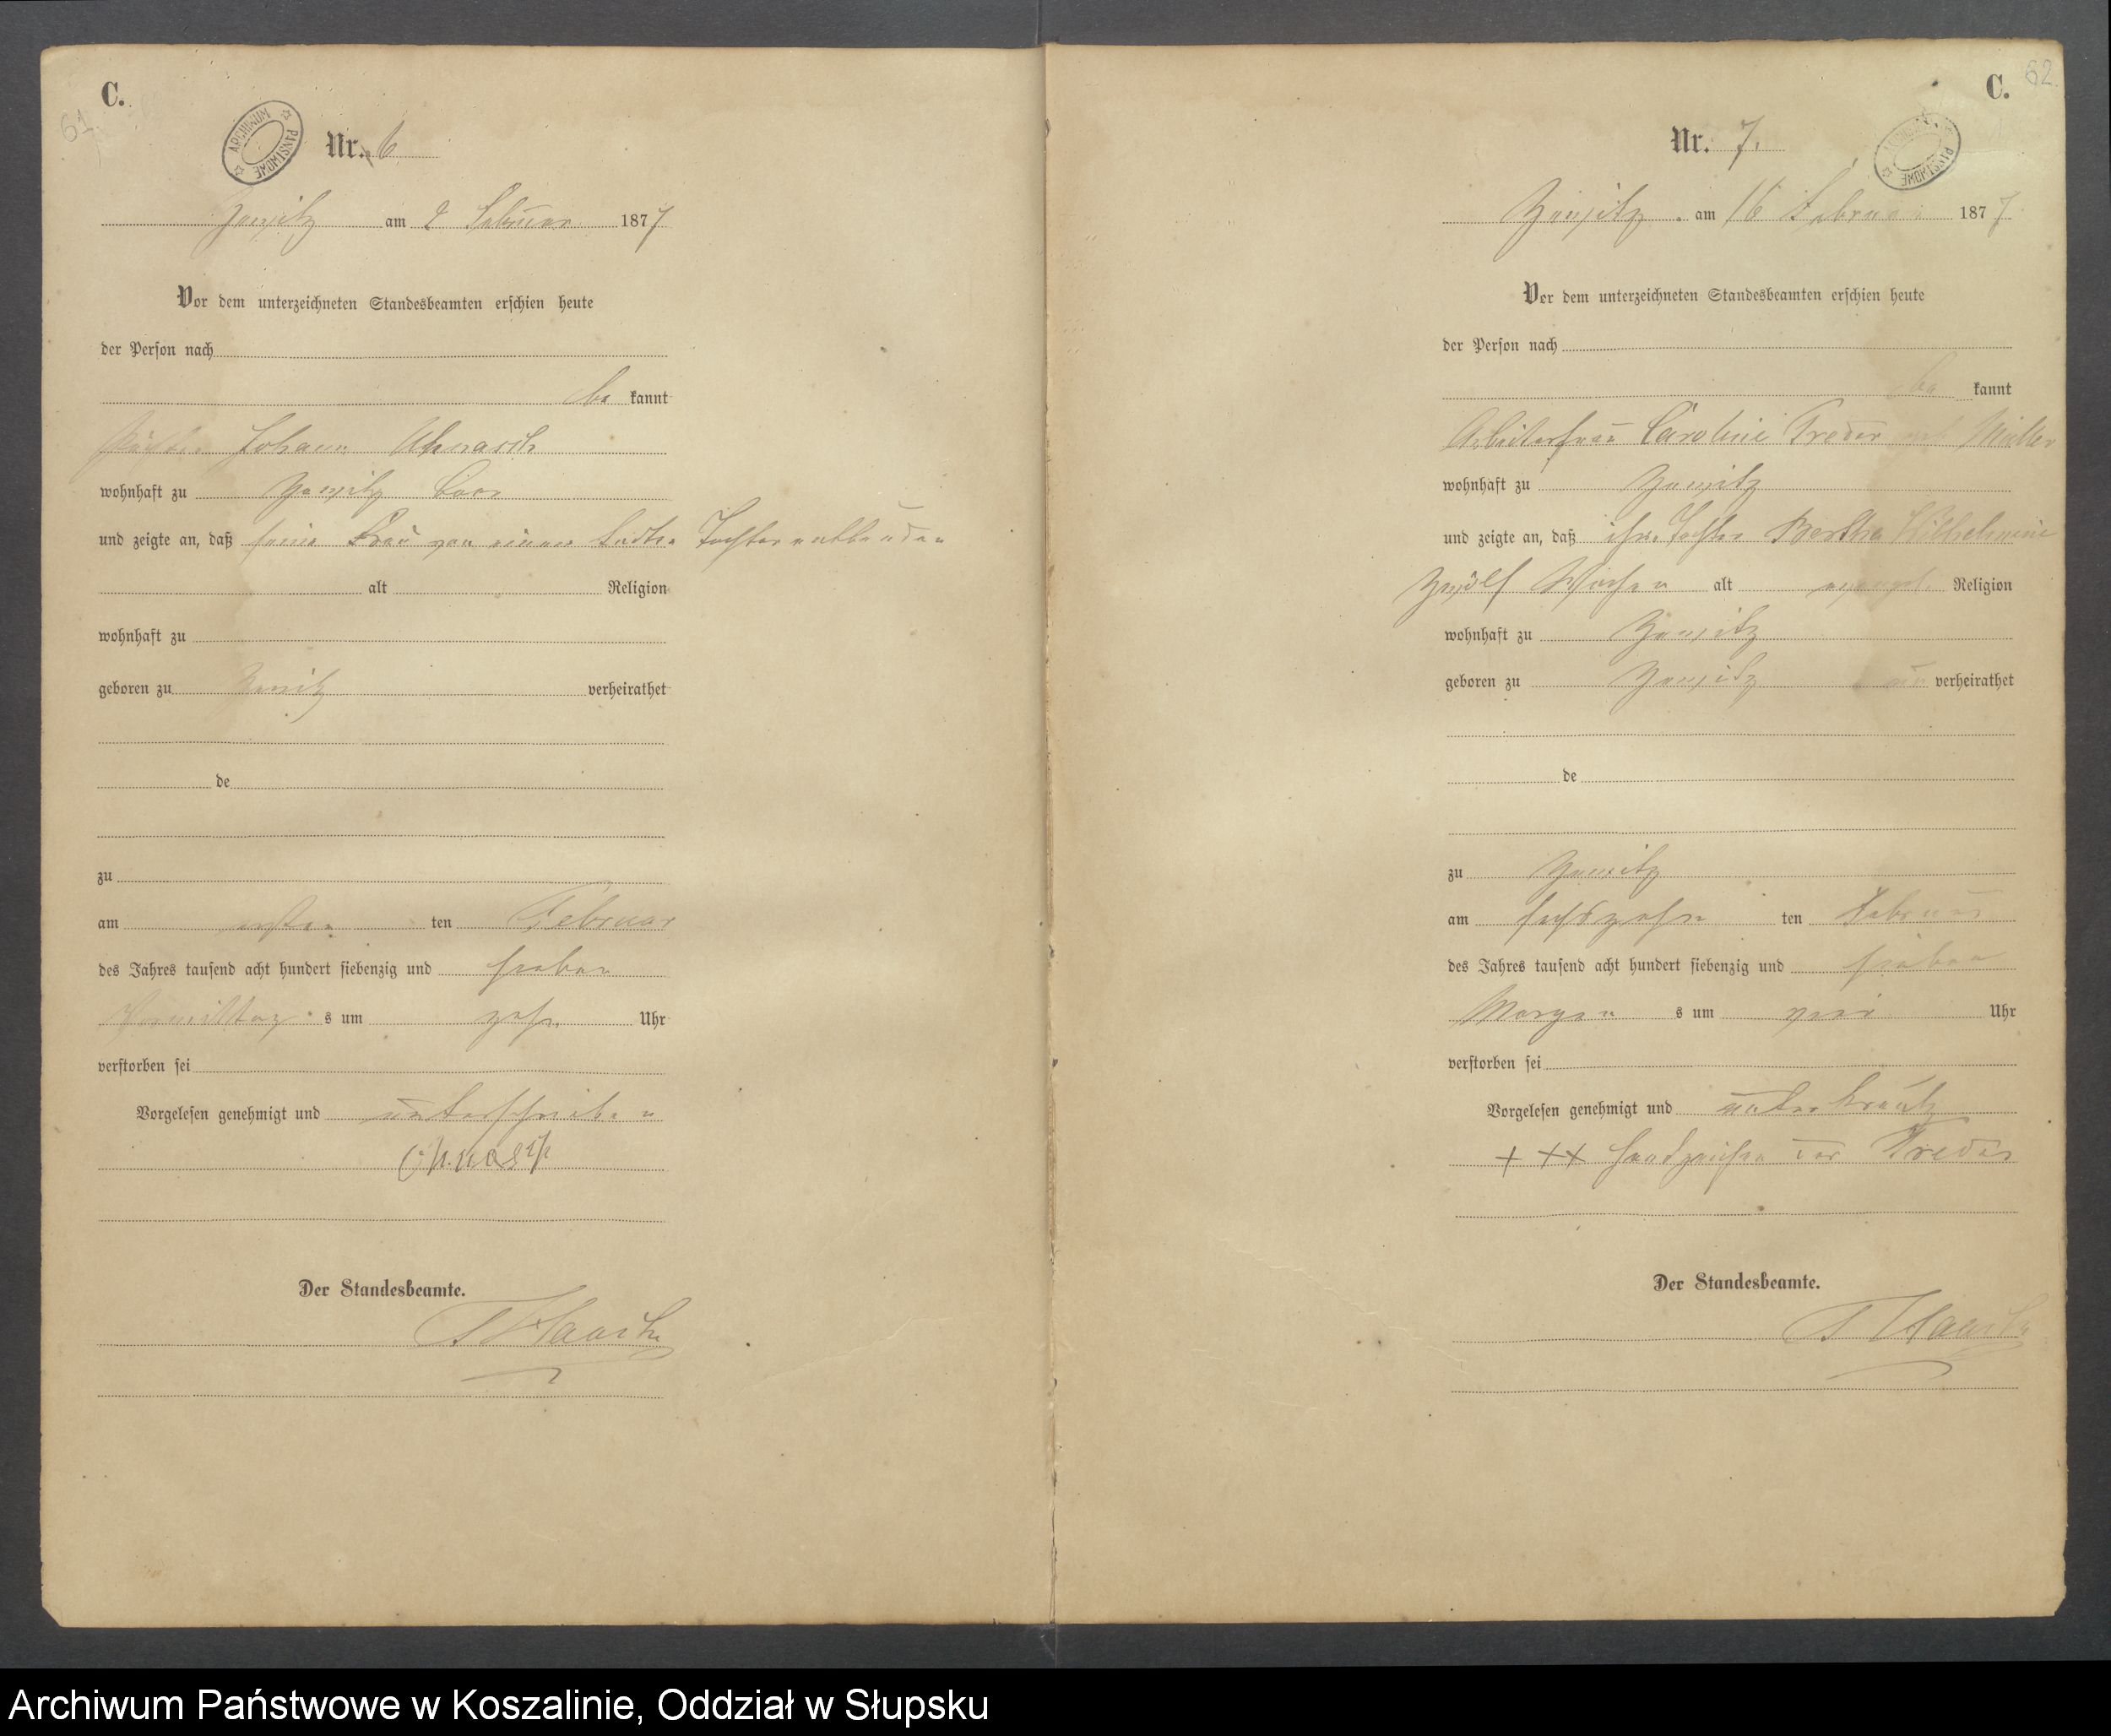 C.
61
ARCHIWUM PAŃSTWOWE
Nr. 6
Zewitz am 2 Februar 1877
Vor dem unterzeichneten Standesbeamten erschien heute
der Person nach
be kannt
Johann
wohnhaft zu Zewitz
und zeigte an, daß seine Frau von einer todten Tochter entbunden
alt Religion
wohnhaft zu
geboren zu Zewitz verheirathet
de
zu
am ersten ten Februar
des Jahres tausend acht hundert siebenzig und sieben
Vormittag s um zehn Uhr
verstorben sei
Vorgelesen genehmigt und unterschrieben
Der Standesbeamte.
C.
62
ARCHIWUM PAŃSTWOWE
Nr. 7.
Zewitz am 16 Februar 1877
Vor dem unterzeichneten Standesbeamten erschien heute
der Person nach
be kannt
Arbeiterfrau Caroline Treder geb Müller
wohnhaft zu Zewitz
und zeigte an, daß ihre Tochter Bertha Wilhelmine
Zwölf Wochen alt evangel. Religion
wohnhaft zu Zewitz
geboren zu Zewitz un verheirathet
de
zu Zewitz
am sechszehn ten Februar
des Jahres tausend acht hundert siebenzig und sieben
Morgen s um Uhr
verstorben sei
Vorgelesen genehmigt und unterkreutz
+ + + Handzeichen der Treder
Der Standesbeamte.
Archiwum Państwowe w Koszalinie, Oddział w Słupsku